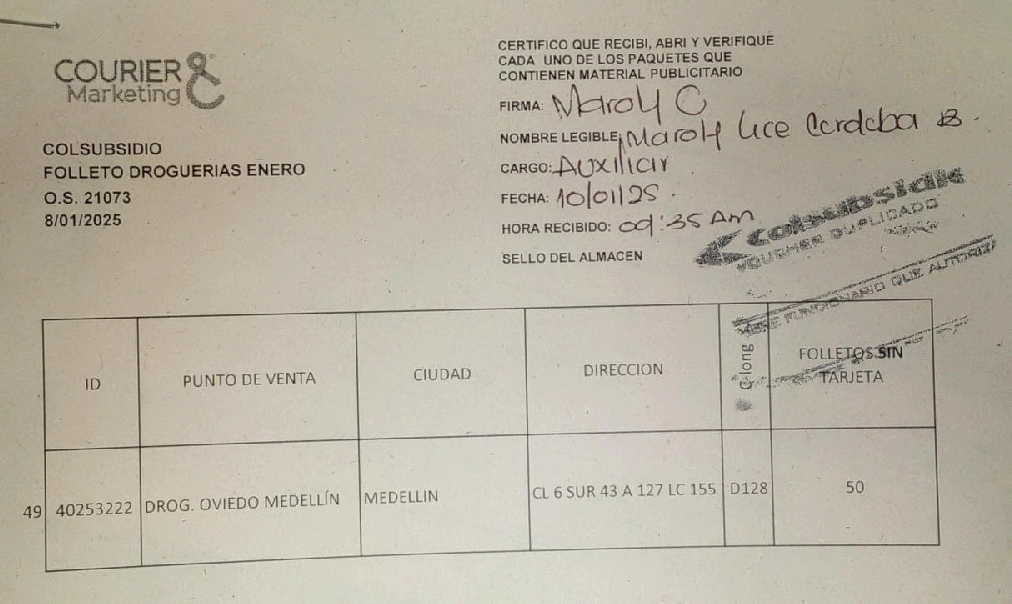 COURIER &
Marketing
COLSUBSIDIO
FOLLETO DROGUERIAS ENERO
O.S. 21073
8/01/2025
CERTIFICO QUE RECIBI, ABRI Y VERIFIQUE
CADA UNO DE LOS PAQUETES QUE
CONTIENEN MATERIAL PUBLICITARIO
FIRMA: Maroly C
NOMBRE LEGIBLE: Maroly Cordoba B.
CARGO: Auxiliar
FECHA: 10/01/25.
HORA RECIBIDO: 09:35 Am
SELLO DEL ALMACEN
colsubsidio
VOUCHER DUPLICADO
FUNCIONARIO QUE AUTORIZA
ID PUNTO DE VENTA CIUDAD DIRECCION FOLLETOS SIN
TARJETA
49 40253222 DROG. OVIEDO MEDELLÍN MEDELLIN CL 6 SUR 43 A 127 LC 155 D128 50